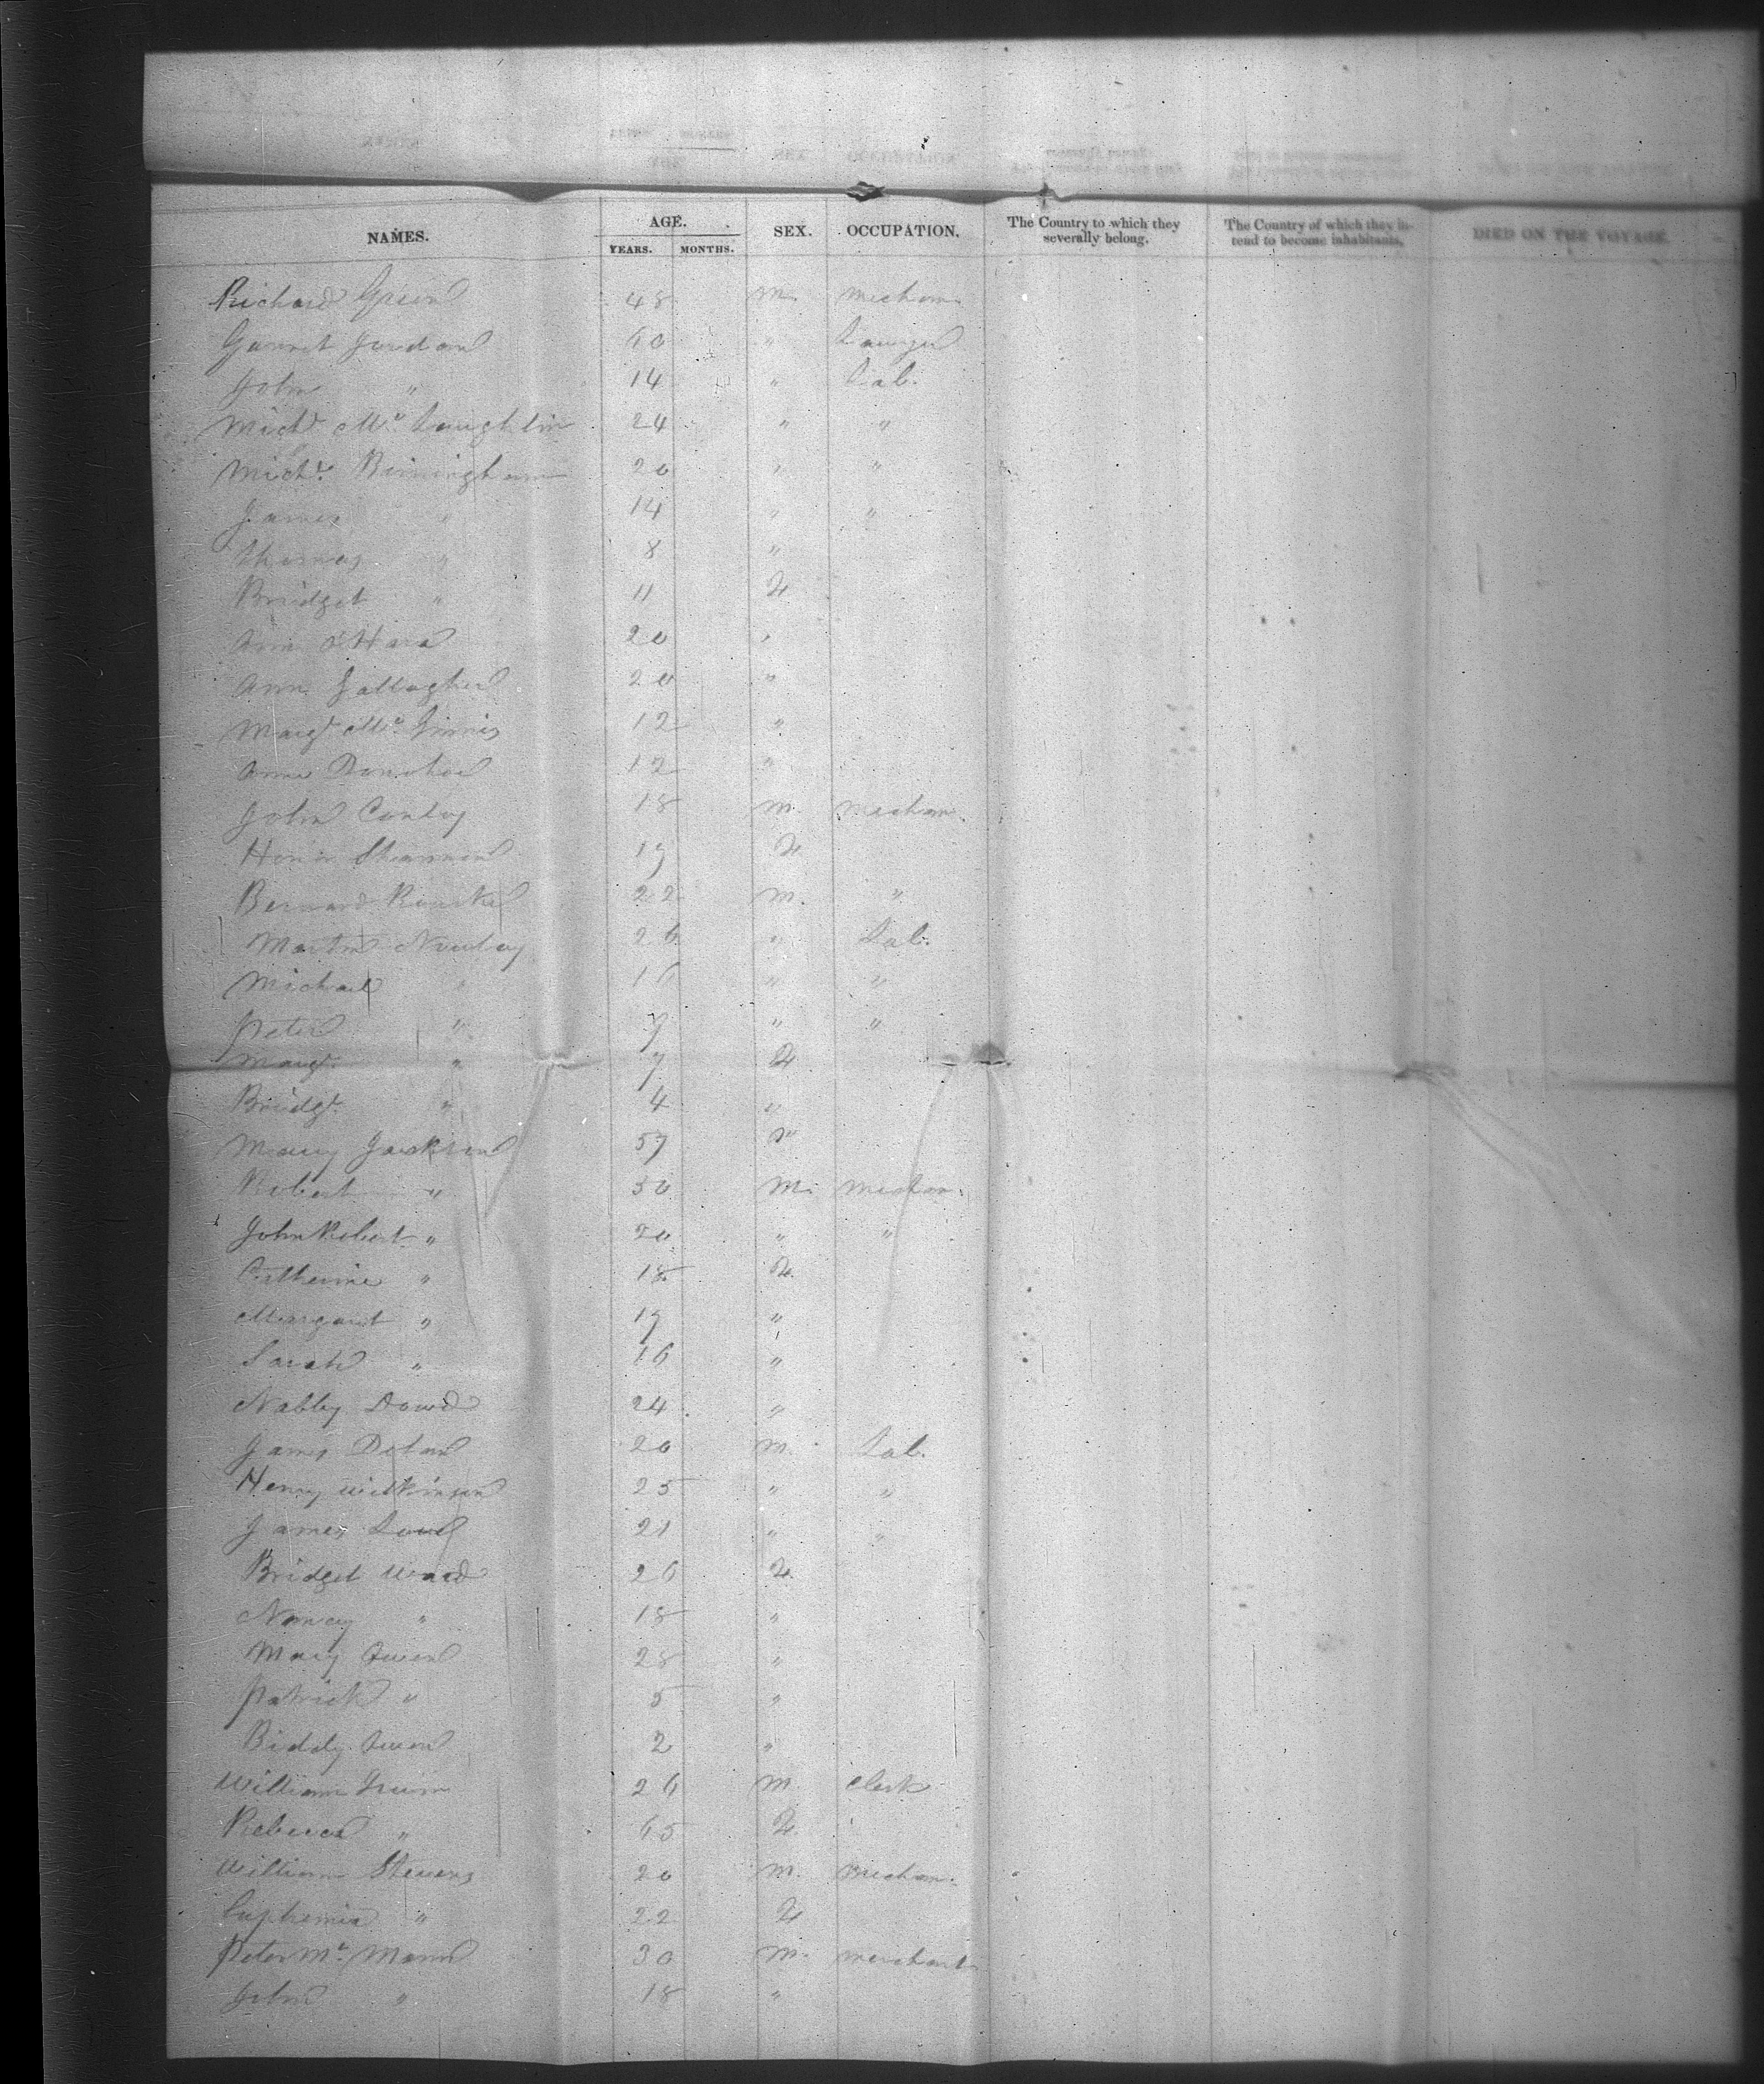 NAMES. AGE. SEX. OCCUPATION. The Country to which they severally belong. The Country of which they intend to become inhabitants. DIED ON THE VOYAGE.
YEARS. MONTHS.
Richard Green 48 M. mechan
Garret Jordan 60 " Lawyer
John " 14 " Lab.
Michl Mc Laughlin 24 " "
Michl. Birmingham 20 " "
James " 14 " "
Thomas " 8 "
Bridget " 11 F
Ann O'Hara 20 "
Ann Gallagher 20 "
Margt Mc Ginnis 12 "
Anne Donohoe 12 "
John Conloy 18 M. mechan.
Honor Shannon 17 F
Bernard Rourke 22 M. "
Martin 26 " Lab.
Michael " 16 " "
Peter " 9 " "
Margt. " 7 F
Bridgt. " 4 "
Mary Jackson 57 "
Robert " 50 M. mechan.
John Robert " 20 " "
Catherine " 18 F.
Margaret " 17 "
Sarah " 16 "
Nabby Dowd 24 "
James Dolan 20 M. Lab.
Henry Wilkinson 25 " "
James 21 " "
Bridget Ward 26 F.
Nancy " 18 "
Mary 28 "
Patrick " 5 "
Biddy 2 "
William 26 M. Clerk
Rebecca " 65 F.
William Stevens 20 M. mechan.
Euphemia " 22 F
Peter Mc. Mann 30 M. merchant
John " 18 "